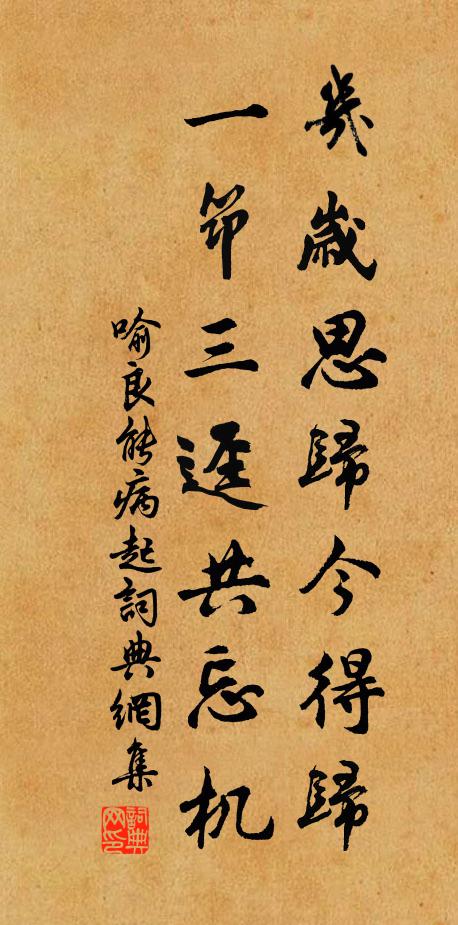 幾歲思歸今得歸
一筇三逕共忘机
喻良能病起詞典網集
詞典网印